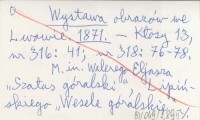 Wystawa obrazów we
Lwowie 1871. — Kłosy 13,
nr 316: 41; nr 318: 76-78.
M. in. Walerego Eljasza
„Szatas góralski", Lipiń-
skiego „Wesele góralskie"